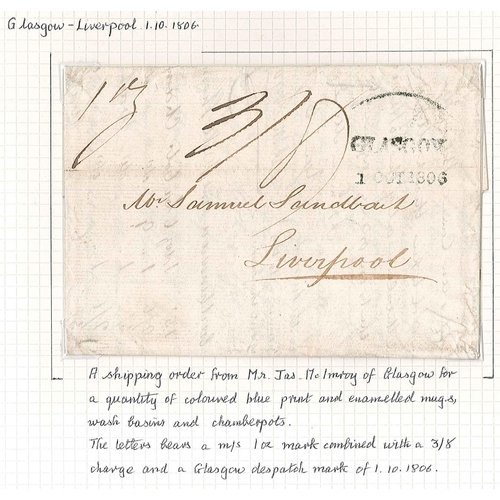 Glasgow-Liverpool 1.10.1806
3/8
GLASGOW
1 OCT 1806
Mr Samuel Sandbach
Liverpool
A shipping order from Mr. Jas. McInroy of Glasgow for
a quantity of coloured blue print and enamelled mugs,
wash basins and chamberpots.
The letters bears a m/s 1oz mark combined with a 3/8
charge and a Glasgow despatch mark of 1.10.1806.